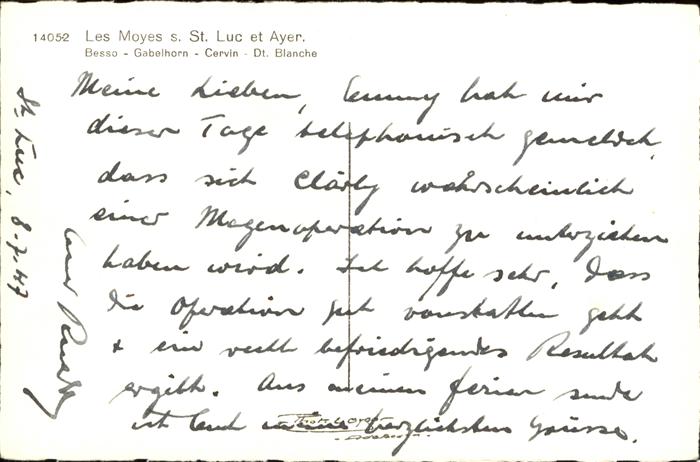 14052 Les Moyes s. St. Luc et Ayer.
Besso - Gabelhorn - Cervin - Dt. Blanche
St. Luc, 8-7-47
Meine Lieben, Emmy hat mir
dieser Tage telephonisch gemeldet,
dass sich Clärly wahrscheinlich
einer Magenoperation zu unterziehen
haben wird. Ich hoffe sehr, dass
die Operation gut vonstatten geht
& ein recht befriedigendes Resultat
ergibt. Aus meinen Ferien sende
ich Euch meine herzlichsten Grüsse.
Euer